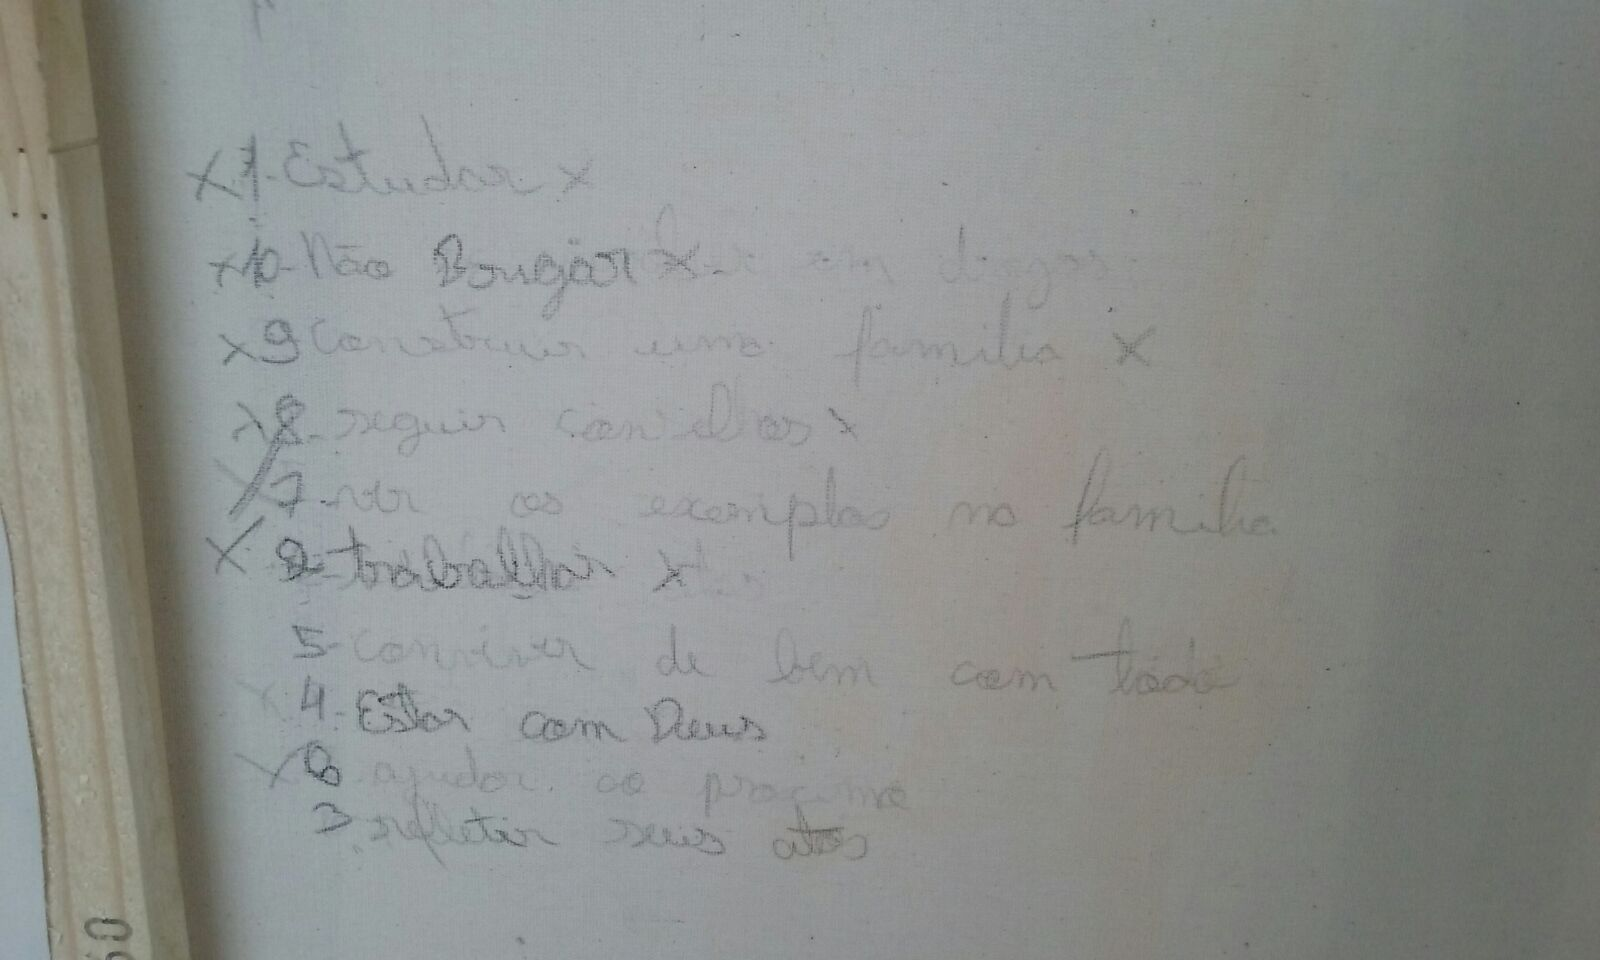 X 1-Estudar X
X 10-Não Brugar X
X 9 Construir uma familia X
X 8-seguir conselhos X
X 7-ver os exemplos na familia
X 2-trabalhar X
5-conviver de bem com todo
4-Estar com Deus
X 6 ajudar ao proximo
3 refletir seus atos
60